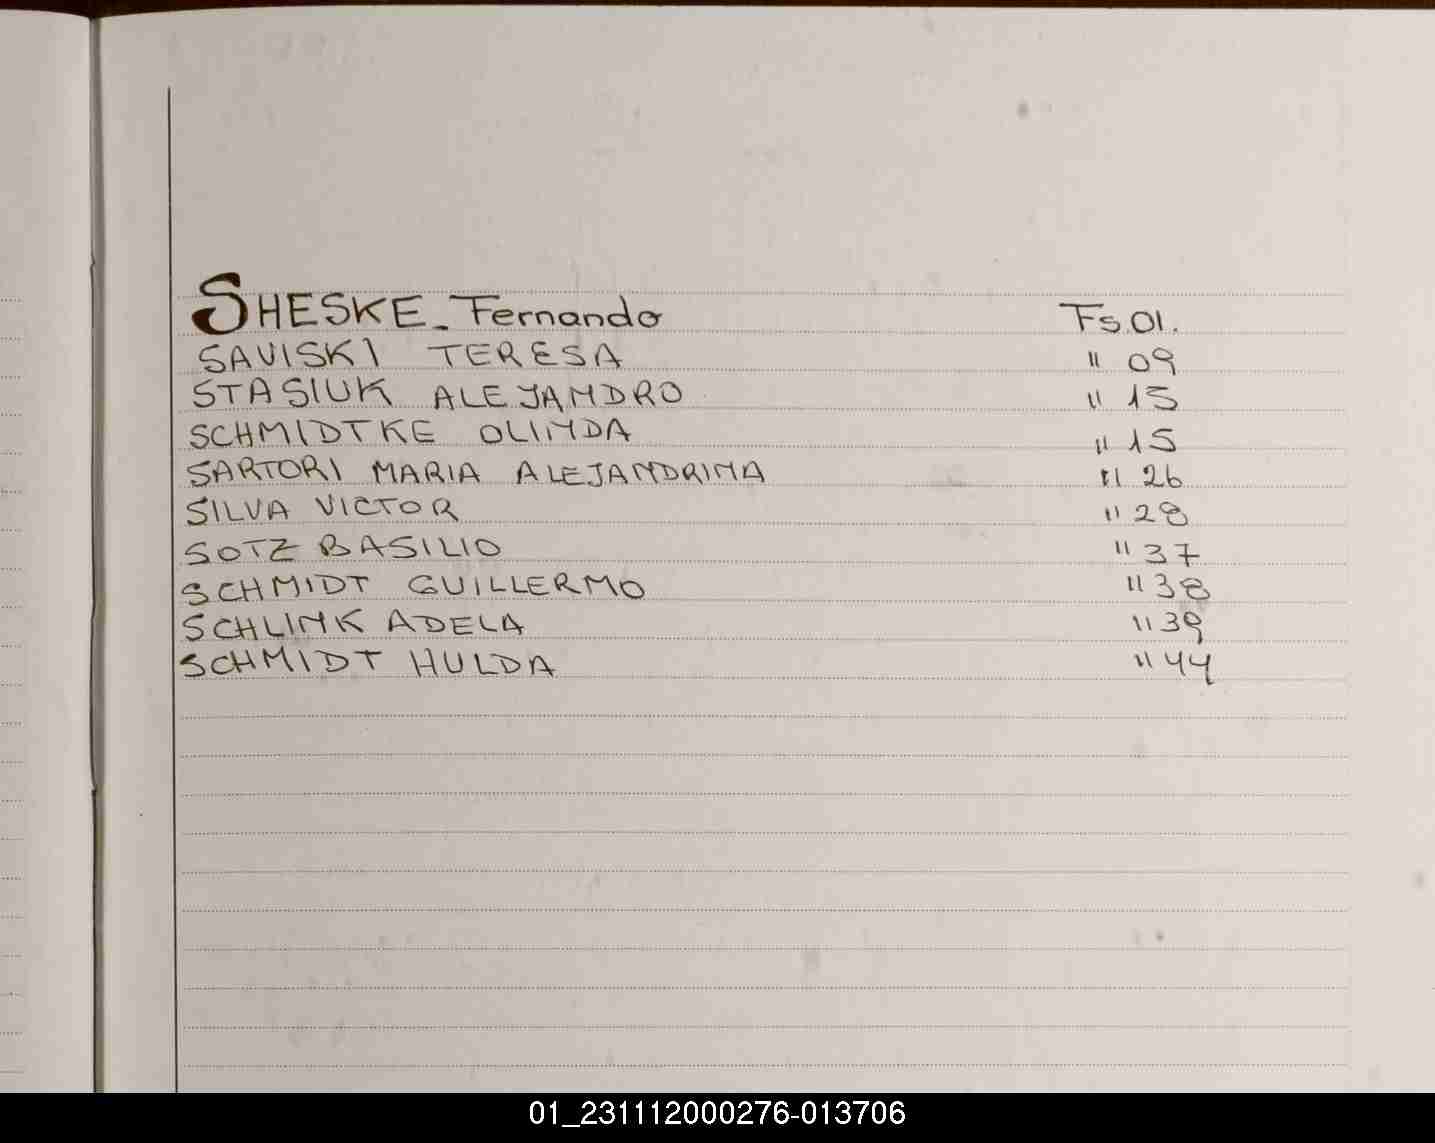 SHESKE_Fernando Fs.01.
SAVISKI TERESA " 09
STASIUK ALEJANDRO " 15
SCHMIDTKE OLINDA " 15
SARTORI MARIA ALEJANDRINA " 26
SILVA VICTOR " 28
SOTZ BASILIO " 37
SCHMIDT GUILLERMO " 38
SCHLINK ADELA " 39
SCHMIDT HULDA " 44
01_231112000276-013706